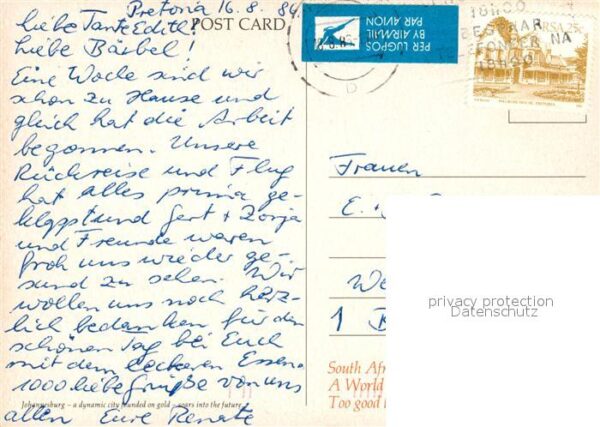 Pretoria 16.8.84
POST CARD
liebe Tante Edith!
liebe Bärbel!
Eine Woche sind wir
schon zu Hause und
gleich hat die Arbeit
begonnen. Unsere
Rückreise und Flug
hat alles prima ge-
klappt und Gert + Zonja
und Freunde waren
froh uns wieder ge-
sund zu sehen. Wir
wollen uns noch herz-
lich bedanken für den
schönen Tag bei Euch
mit dem leckeren Essen.
1000 liebe Grüße von uns
allen Eure Renate
Johannesburg – a dynamic city founded on gold – soars into the future
PER LUGPOS
BY AIRMAIL
PAR AVION
18h00
RSA 25c
Frauen
E.
We
1 B
South Afr
A World
Too good
privacy protection
Datenschutz